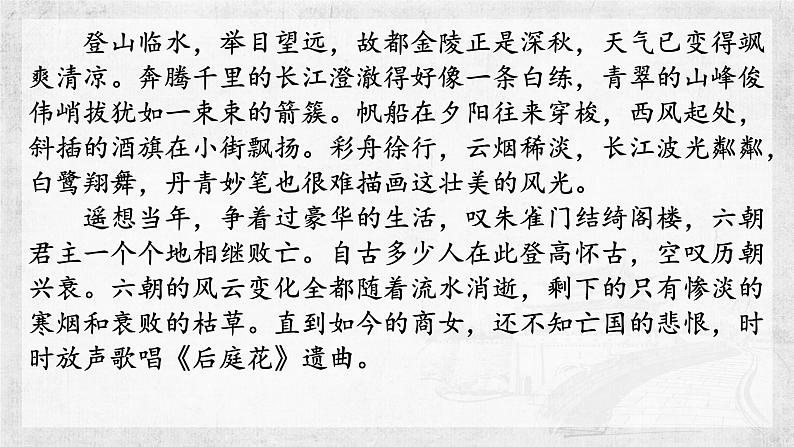 登山临水，举目望远，故都金陵正是深秋，天气已变得飒
爽清凉。奔腾千里的长江澄澈得好像一条白练，青翠的山峰俊
伟峭拔犹如一束束的箭簇。帆船在夕阳往来穿梭，西风起处，
斜插的酒旗在小街飘扬。彩舟徐行，云烟稀淡，长江波光粼粼，
白鹭翔舞，丹青妙笔也很难描画这壮美的风光。
遥想当年，争着过豪华的生活，叹朱雀门结绮阁楼，六朝
君主一个个地相继败亡。自古多少人在此登高怀古，空叹历朝
兴衰。六朝的风云变化全都随着流水消逝，剩下的只有惨淡的
寒烟和衰败的枯草。直到如今的商女，还不知亡国的悲恨，时
时放声歌唱《后庭花》遗曲。